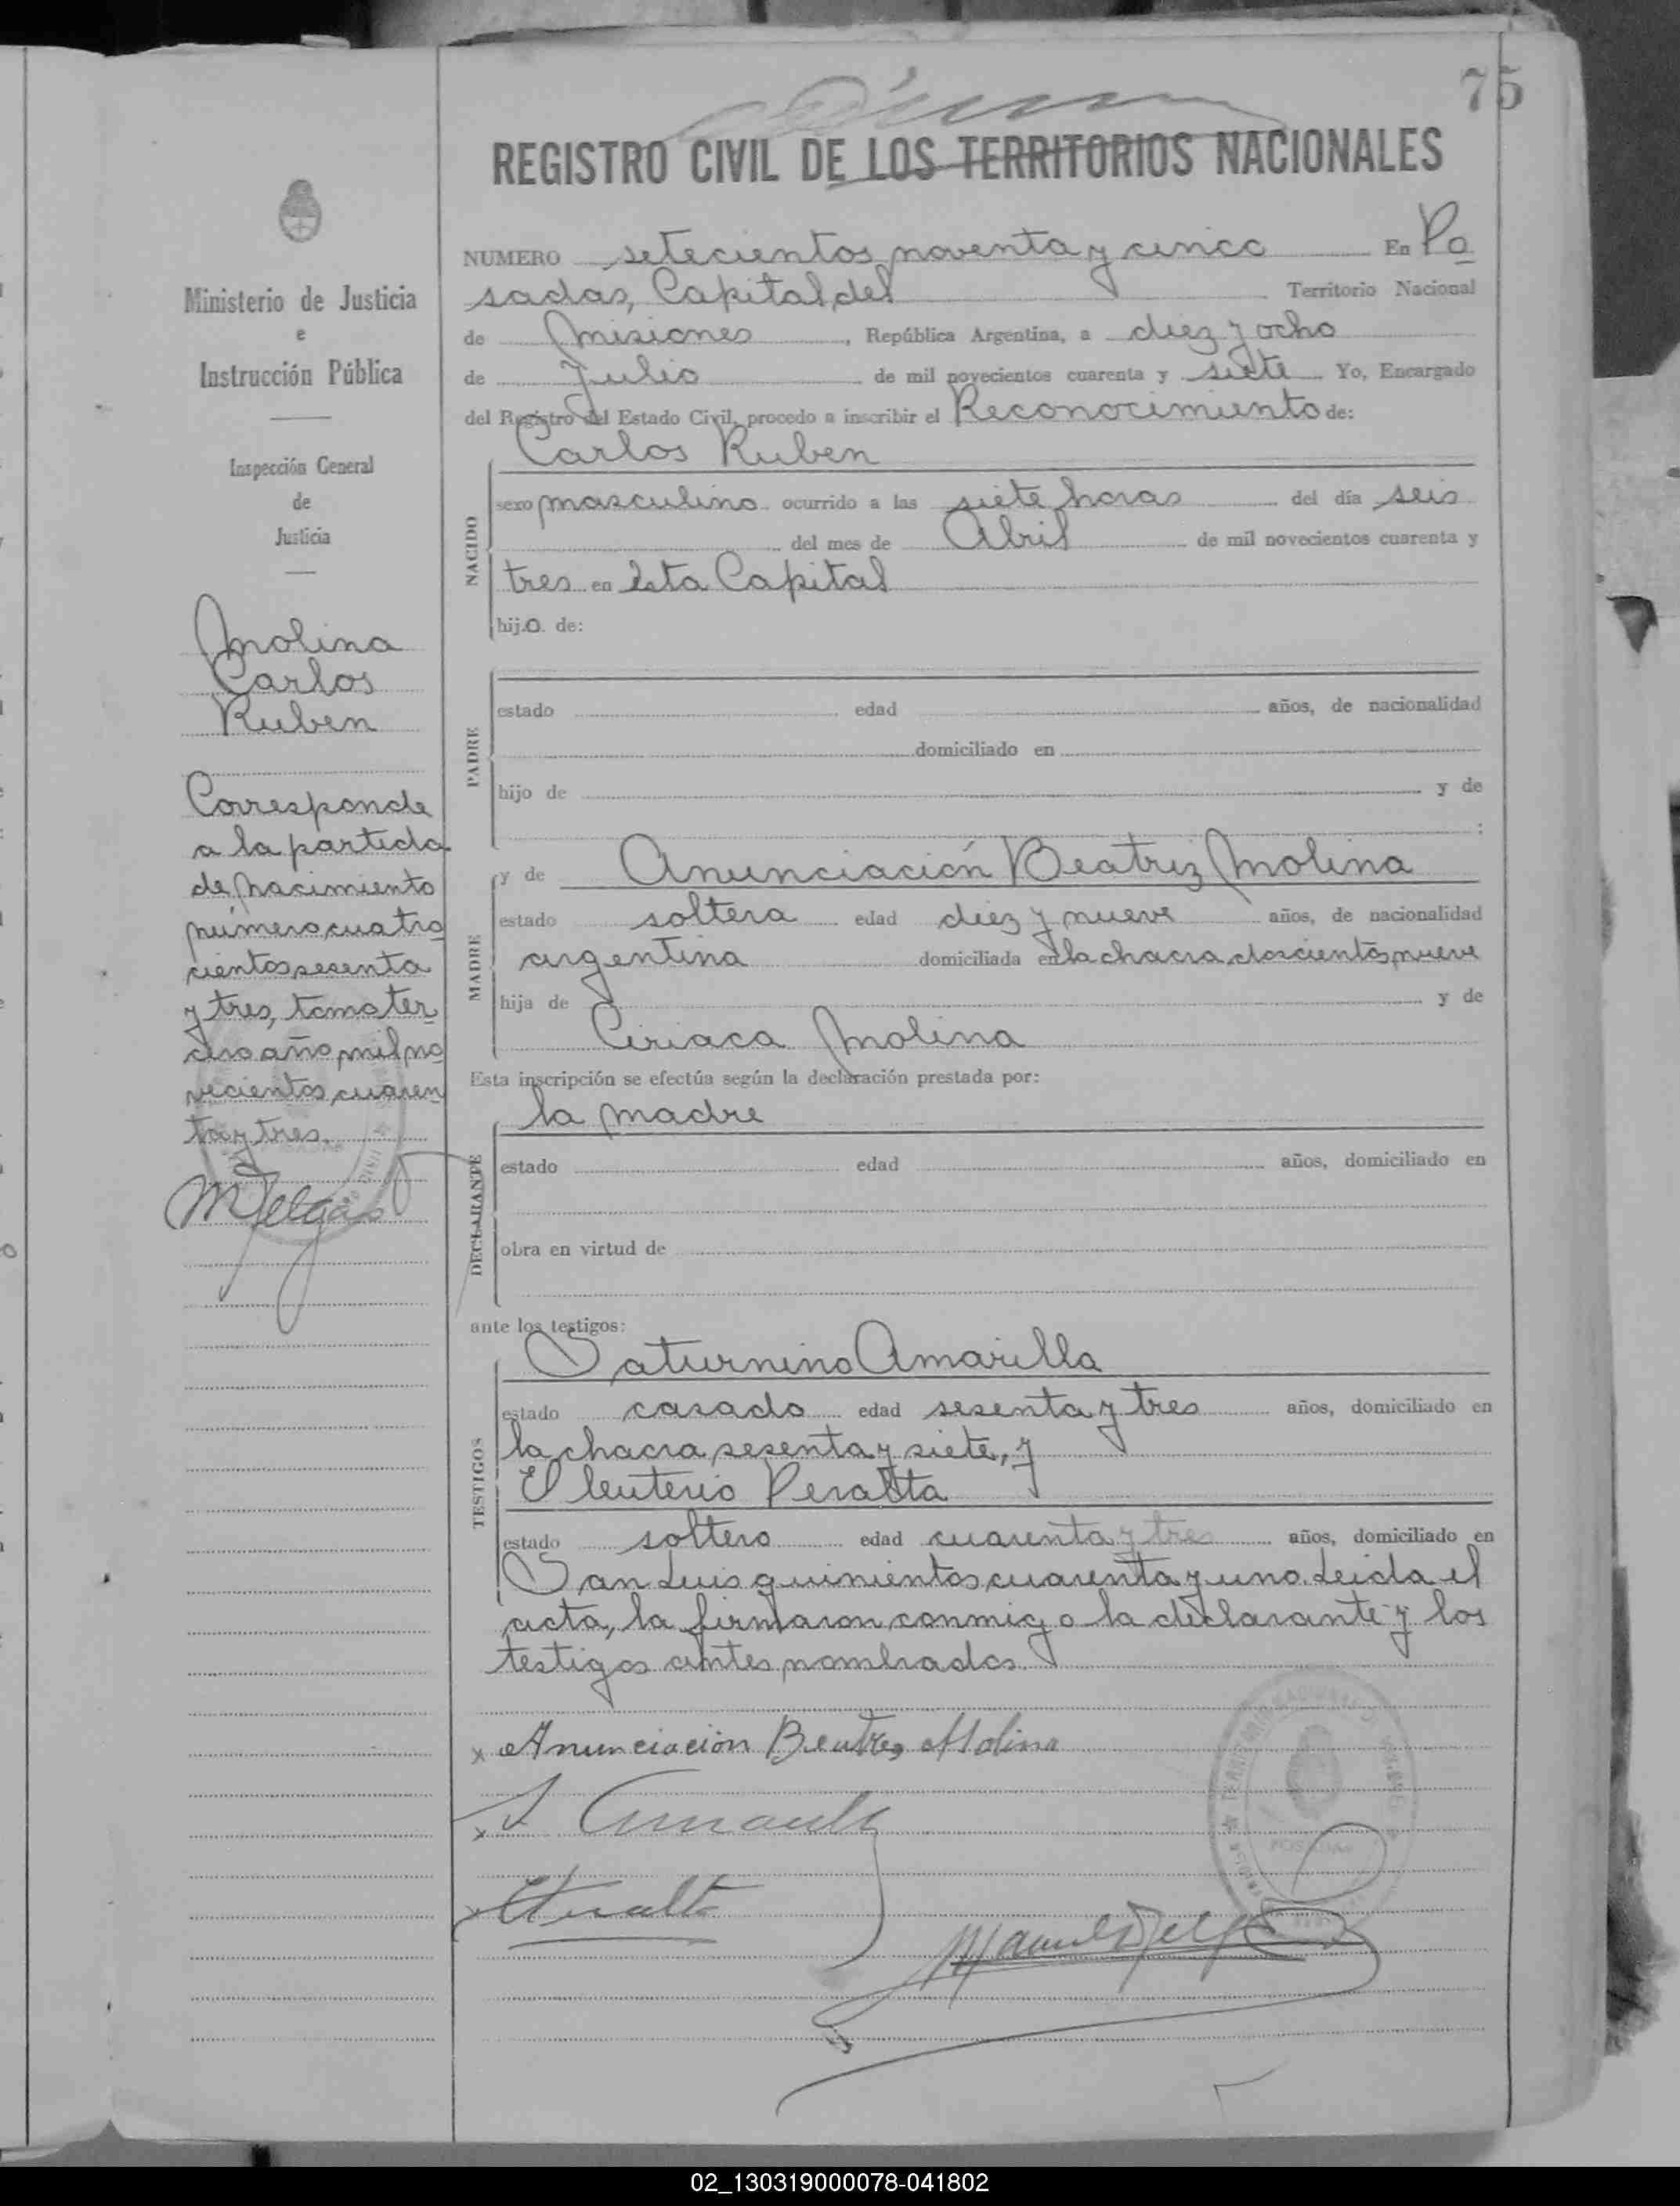 75
REGISTRO CIVIL DE LOS TERRITORIOS NACIONALES
Ministerio de Justicia
e
Instrucción Pública
Inspección General
de
Justicia
Molina
Carlos
Ruben
Corresponde
a la partida
de nacimiento
número cuatro
cientos sesenta
y tres, tomo ter
cero año mil no
vecientos cuaren
ta y tres.
NUMERO setecientos noventa y cinco En Po
sadas, Capital del Territorio Nacional
de Misiones, República Argentina, a diez y ocho
de Julio de mil novecientos cuarenta y siete Yo, Encargado
del Registro del Estado Civil, procedo a inscribir el Reconocimiento de:
Carlos Ruben
NACIDO
sexo masculino ocurrido a las siete horas del día seis
del mes de Abril de mil novecientos cuarenta y
tres en esta Capital
hijo de:
PADRE
estado edad años, de nacionalidad
domiciliado en
hijo de y de
:
y de Anunciación Beatriz Molina
MADRE
estado soltera edad diez y nueve años, de nacionalidad
argentina domiciliada en la chacra doscientos nueve
hija de y de
Ciriaca Molina
Esta inscripción se efectúa según la declaración prestada por:
la madre
DECLARANTE
estado edad años, domiciliado en
obra en virtud de
ante los testigos:
Saturnino Amarilla
TESTIGOS
estado casado edad sesenta y tres años, domiciliado en
la chacra sesenta y siete, y
Eleuterio Peralta
estado soltero edad cuarenta y tres años, domiciliado en
San Luis quinientos cuarenta y uno. Leida el
acta, la firmaron conmigo la declarante y los
testigos antes nombrados.
x Anunciación Beatriz Molina
x
x
02_130319000078-041802